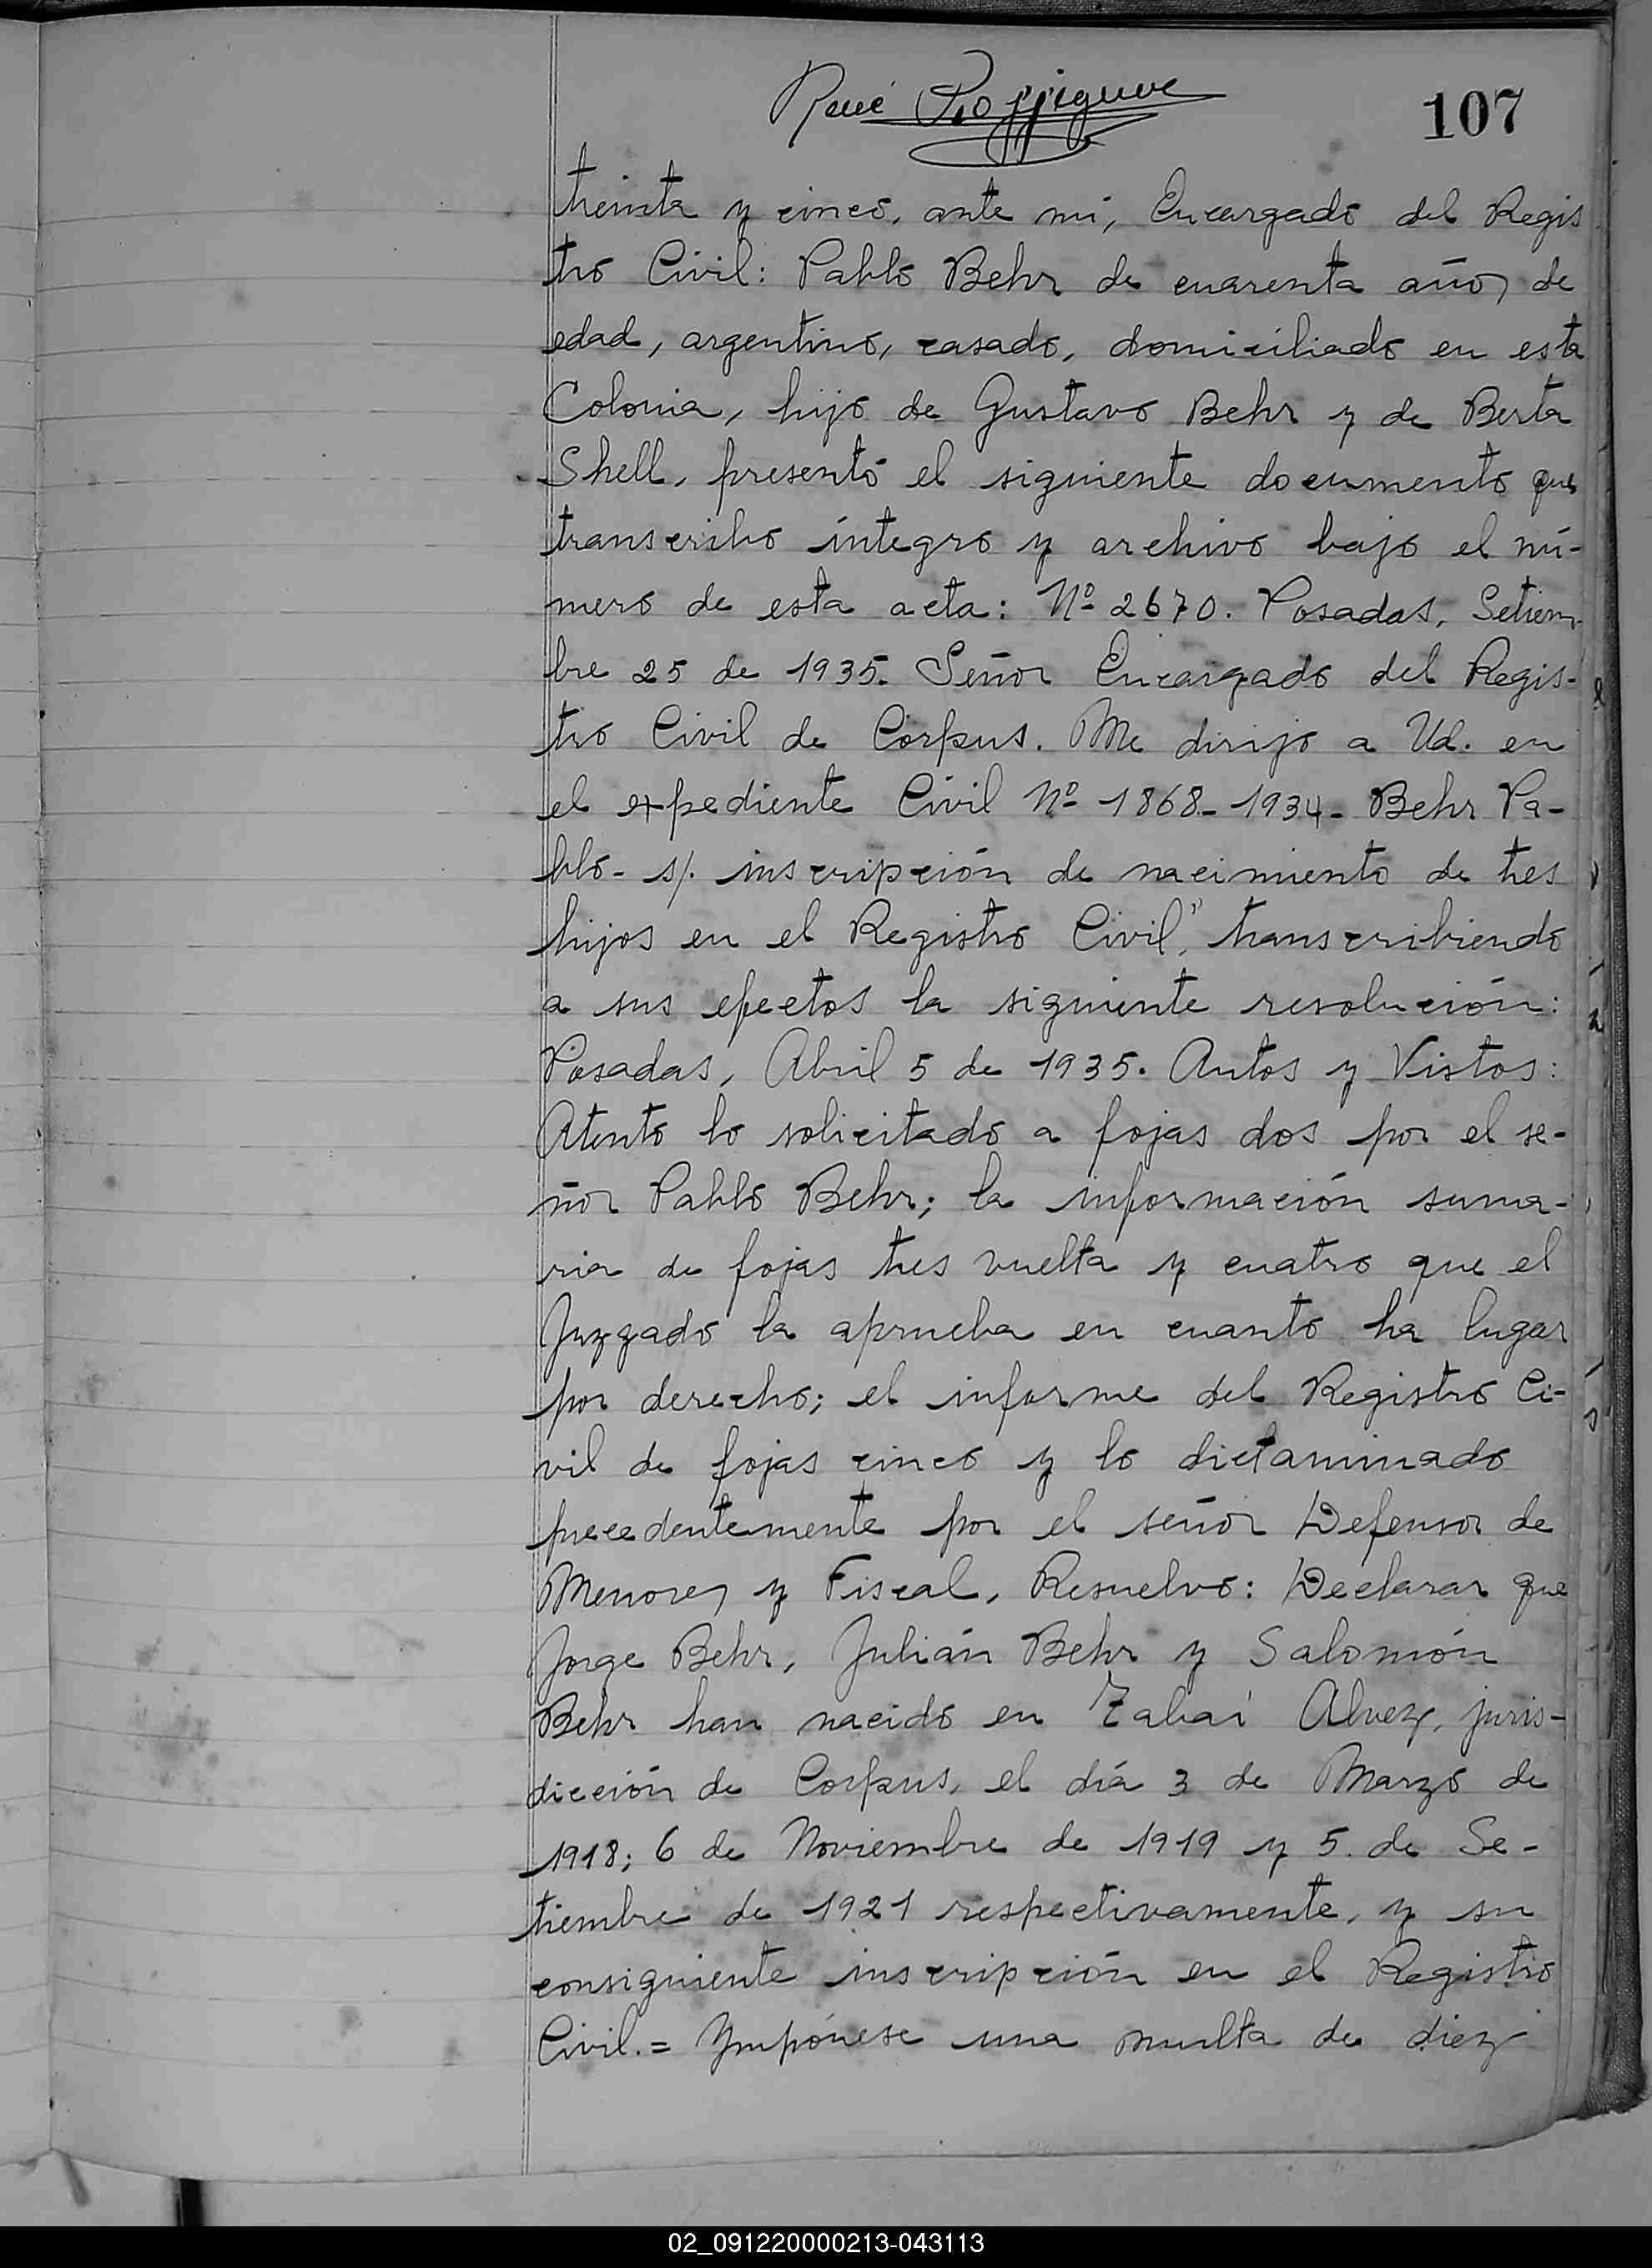 René Rossigneve
107
treinta y cinco, ante mi, Encargado del Regis
tro Civil: Pablo Behr de cuarenta años de
edad, argentino, casado, domiciliado en esta
Colonia, hijo de Gustavo Behr y de Berta
Shell, presentó el siguiente documento que
transcribo íntegro y archivo bajo el nú-
mero de esta acta: Nº 2670. Posadas, Setiem-
bre 25 de 1935. Señor Encargado del Regis-
tro Civil de Corpus. Me dirijo a Ud. en
el expediente Civil Nº 1868-1934- Behr Pa-
blo- s/. inscripción de nacimiento de tres
hijos en el Registro Civil", transcribiendo
a sus efectos la siguiente resolución:
Posadas, Abril 5 de 1935. Autos y Vistos:
Atento lo solicitado a fojas dos por el se-
ñor Pablo Behr; la información suma-
ria de fojas tres vuelta y cuatro que el
Juzgado la aprueba en cuanto ha lugar
por derecho; el informe del Registro Ci-
vil de fojas cinco y lo dictaminado
precedentemente por el señor Defensor de
Menores y Fiscal, Resuelvo: Declarar que
Jorge Behr, Julián Behr y Salomón
Behr han nacido en Tabaí Alvez, juris-
dicción de Corpus, el día 3 de Marzo de
1918; 6 de Noviembre de 1919 y 5 de Se-
tiembre de 1921 respectivamente, y su
consiguiente inscripción en el Registro
Civil.= Ympónese una multa de diez
02_091220000213-043113